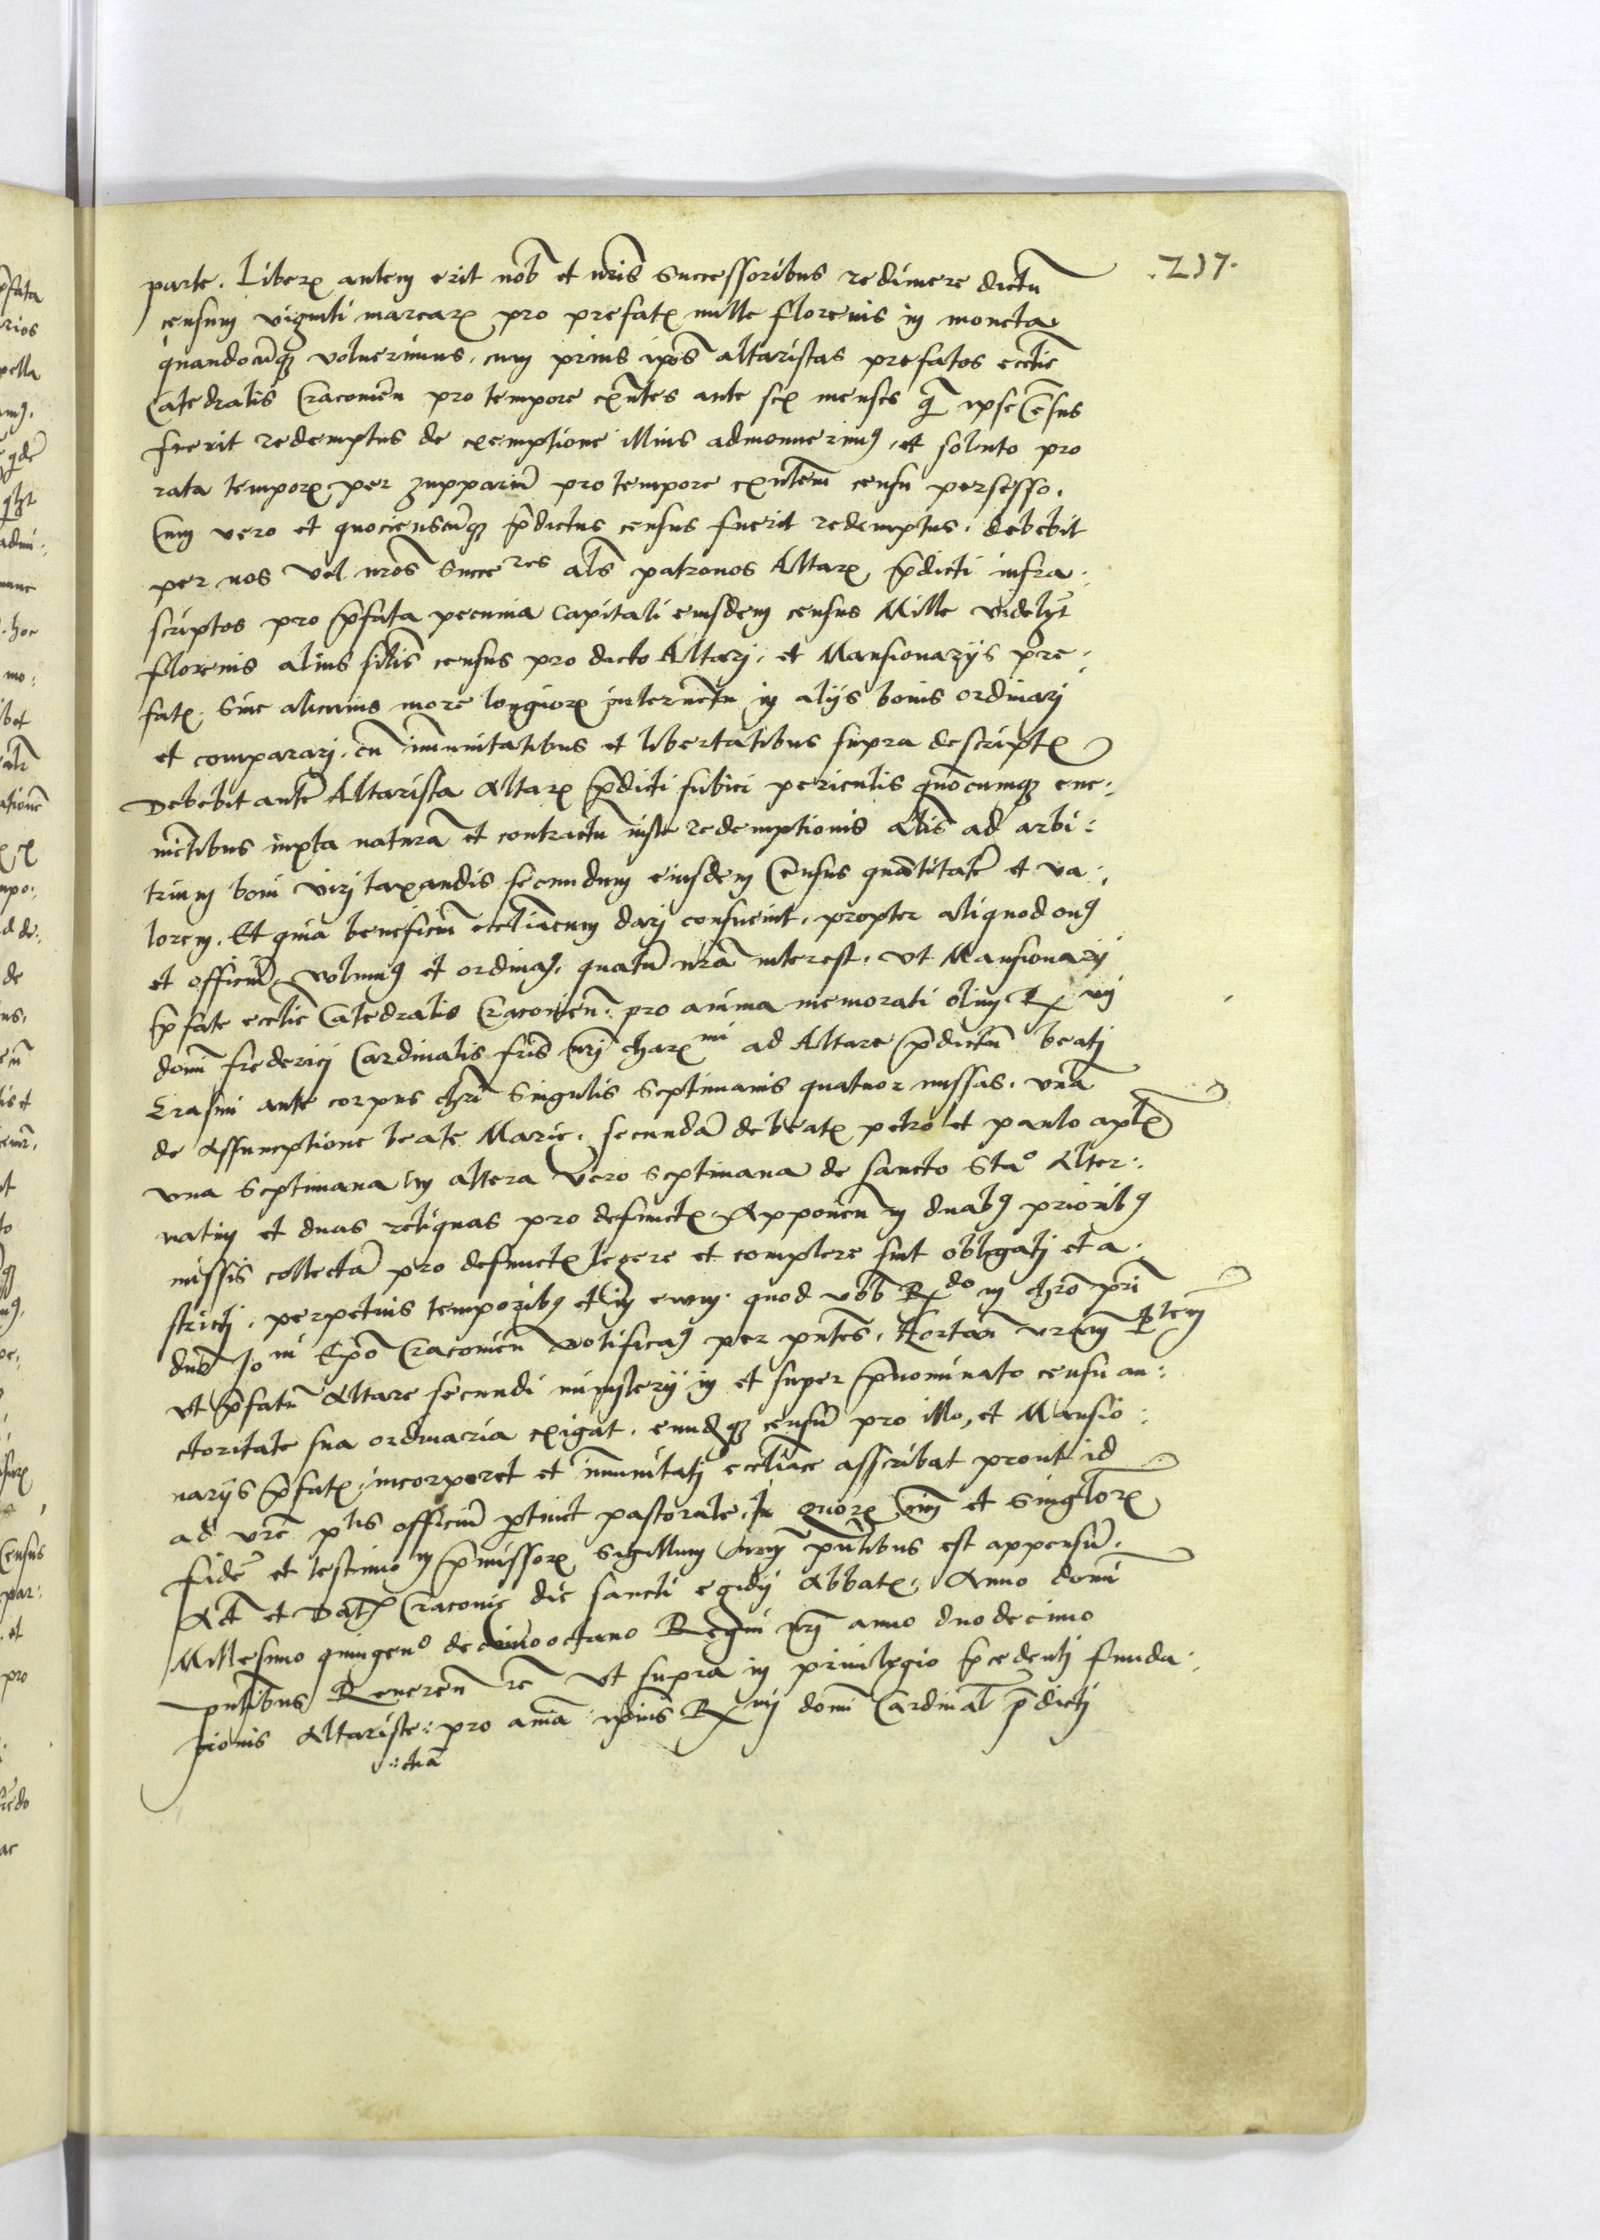 .217.
parte. Liberꝝ autem erit nob̃ et nr̃is Successoribus redimere dictũ
censum viginti marcarꝝ pro prefatꝭ mille florenis in moneta
quandocũqꝫ voluerimus, cum prius ip̃os altaristas prefatos eccl̃ie
Catedralis Cracouien̄ pro tempore exñtes ante sex menses q̃ ipse Census
fuerit redemptus de exemptione illius admonuerimꝰ, et soluto pro
rata temporꝭ per zuppariũ pro tempore exñtem censu persesso.
Cum vero et quocienscũqꝫ p̃dictus census fuerit redemptus, debebit
per nos vel nr̃os Succeres al̃s patronos Altarꝭ p̃dicti infra:
scriptos pro p̃fata pecunia Capitali eiusdem census Mille videlꝫt
florenis alius sil̃is census pro dicto Altari, et Mansionarijs pre:
fatꝭ, Sine alicuius more longiorꝭ interuẽtu in alijs bonis ordinari
et comparari, cũ im̃unitatibus et libertatibus supra descriptꝭ
Debebit autẽ Altarista Altarꝭ p̃dicti subici periculis quõcumqꝫ eue:
niẽtibus iuxta naturã et contractũ iuste redemptionis al̃is ad arbi:
trium boni viri taxandis secundum eiusdem Census quãtitatẽ et va:
lorem. Et quia beneficiũ eccl̃iacum dari consueuit, propter aliquod onꝰ
et officiũ volumꝰ et ordinaꝰ, quatũ nr̃a interest, vt Mansionarij
p̃fate eccl̃ie Catedralis Cracouien̄: pro anima memorati olim Rmi
domi Frederici Cardinalis fr̃is nr̃i charmi ad Altare p̃dictũ beati
Erasmi ante corpus chr̃i Singulis Septimanis quatuor missas, vnã
de Assumptione beate Marie, secundã de beatꝭ petro et paulo apl̃ꝭ
vna Septimana in altera vero Septimana de sancto Stao Alter:
natim et duas reliquas pro defunctꝭ Apponen̄ in duabꝰ prioribꝰ
missis collectã pro defunctꝭ legere et complere sint obligati et a:
stricti, perpetuis temporibꝰ et in euum. quod vob̃ Rdo in chr̃o pr̃i
dño Joni Ep̃o Cracouien̄ notificaꝰ per pñtes, Hortan̄ vr̃am Ptem
vt p̃fatũ Altare secundi ministerij in et super p̃nominato censu au:
ctoritate sua ordinaria erigat, eundẽqꝫ censũ pro illo, et Mansio:
narijs p̃fatꝭ, incorporet et im̃unitati eccl̃iace asscribat prout id
ad vr̃e ptis officiũ ptinet pastorale, In quorꝝ oim̃ et Singlorꝝ
fidẽ et testimoim p̃missorꝝ Sigillum nr̃um pñtibus est appensũ.
Act̃ et Datꝭ Cracouie die sancti egidij Abbatꝭ, Anno domi
Millesimo quingeno decimooctauo Regni nr̃i anno duodecimo
pñtibus Reueren̄ rc̃ vt supra in priuilegio p̃cedenti funda:
tionis Altariste: pro aĩa ipius Rmi domi Cardinal̃ p̃dicti
:: etiã